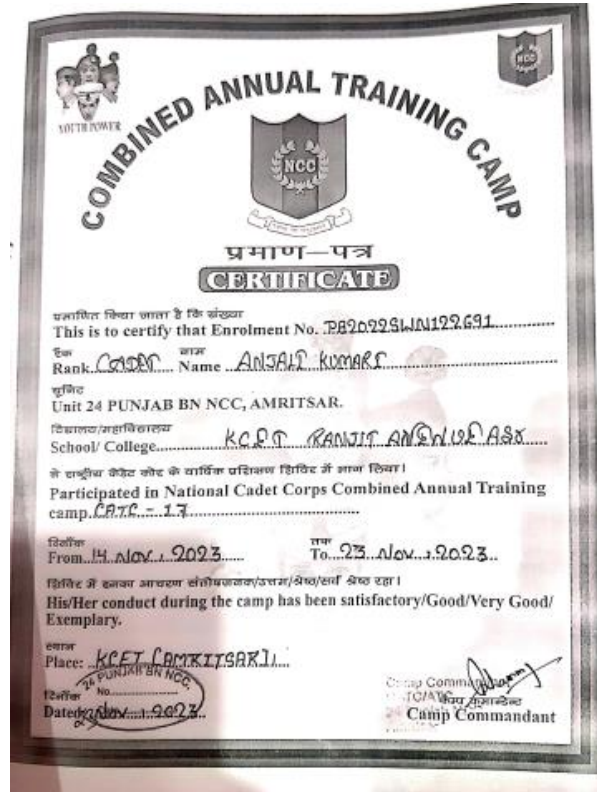 YOUTH POWER
NCC
COMBINED ANNUAL TRAINING CAMP
NCC
प्रमाण-पत्र
CERTIFICATE
प्रमाणित किया जाता है कि संख्या
This is to certify that Enrolment No. PB2022SWN122691
रैंक नाम
Rank CADET Name ANJALI KUMARI
यूनिट
Unit 24 PUNJAB BN NCC, AMRITSAR.
विद्यालय/महाविद्यालय
School/ College KCET RANJIT ASR
ने राष्ट्रीय कैडेट कोर के वार्षिक प्रशिक्षण शिविर में भाग लिया।
Participated in National Cadet Corps Combined Annual Training
camp. CATC - 17
दिनाँक तक
From 14 Nov, 2023 To 23 Nov, 2023
शिविर में इनका आचरण संतोषजनक/उत्तम/श्रेष्ठ/सर्व श्रेष्ठ रहा।
His/Her conduct during the camp has been satisfactory/Good/Very Good/
Exemplary.
स्थान
Place: KCET (AMRITSAR)
24 PUNJAB BN NCC,
No.
दिनाँक
Dated Nov, 2023
Camp
कैम्प कमान्डेन्ट
Camp Commandant